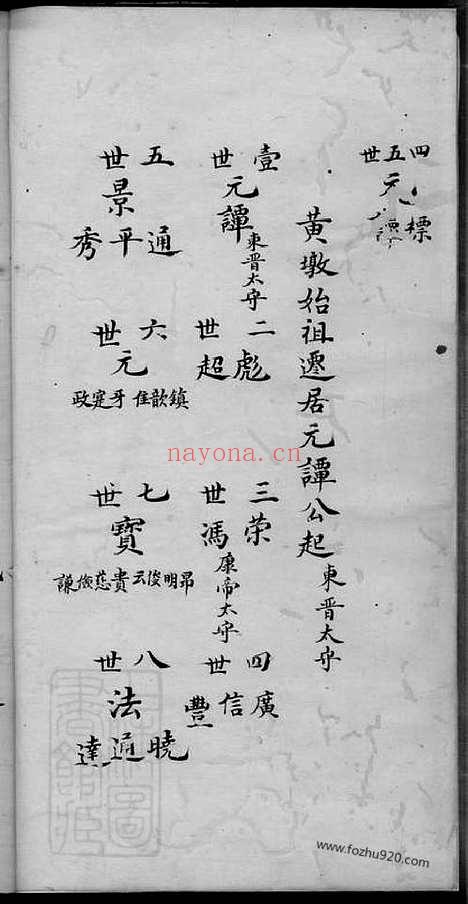 四五世
標
元譚
黃墩始祖遷居元譚公起 東晋太守
壹世
元譚 東晋太守
二世
彪
超
三世
荣
馮 康帝太守
四世
廣
信
豐
五世
景
通
平
秀
六世
元
鎮歆佳牙寔政
七世
寶
昂明俊云貴慈儉謙
八世
法
曉
通
達
nayona.cn
www.fozhu920.com